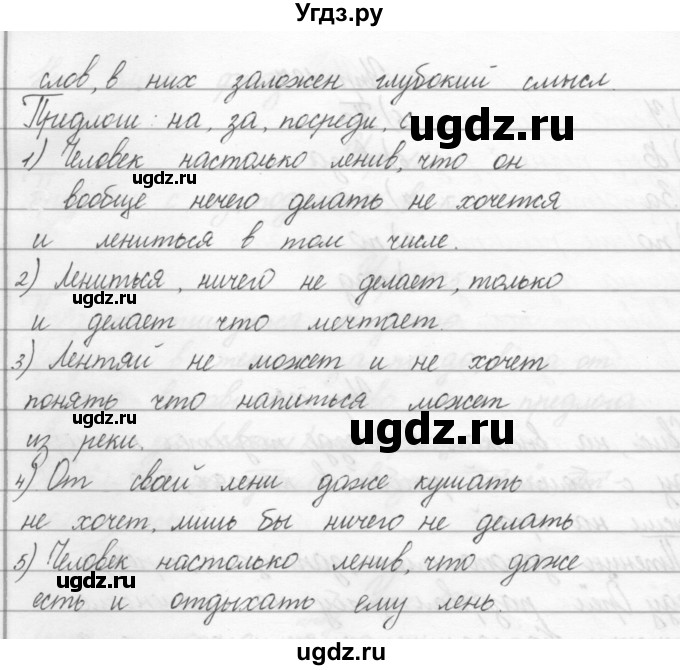 Угдз.ру
слов, в них заложен глубокий смысл.
Придлоги: на, за, посреди, с
ugdz.ru
1) Человек настолько ленив, что он
ugdz.ru
вообще нечего делать не хочется
и лениться в том числе.
2) Лениться, ничего не делает, только
ugdz.ru
и делает что мечтает.
3) Лентяй не может и не хочет
понять что напиться может
ugdz.ru
из реки.
ugdz.ru
4) От своей лени даже кушать
не хочет, лишь бы ничего не делать
5) Человек настолько ленив, что даже
ugdz.ru
есть и отдыхать ему лень.
ugdz.ru